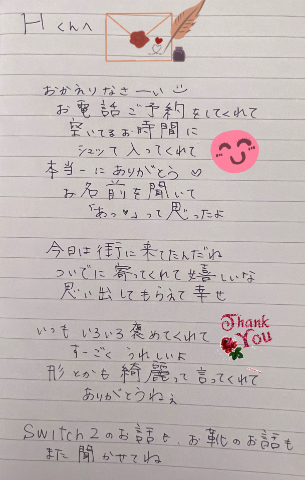 Hくんへ
おかえりなさーい
お電話ご予約をしてくれて
空いてるお時間に
シュッて入ってくれて
本当ーにありがとう♡
お名前を聞いて
「あっ♥」って思ったよ
今日は街に来てたんだね
ついでに寄ってくれて嬉しいな
思い出してもらえて幸せ
いつもいろいろ褒めてくれて
すーごくうれしいよ
形とかも綺麗って言ってくれて
ありがとうねぇ
Thank
You
Switch2のお話も、お靴のお話も
また聞かせてね